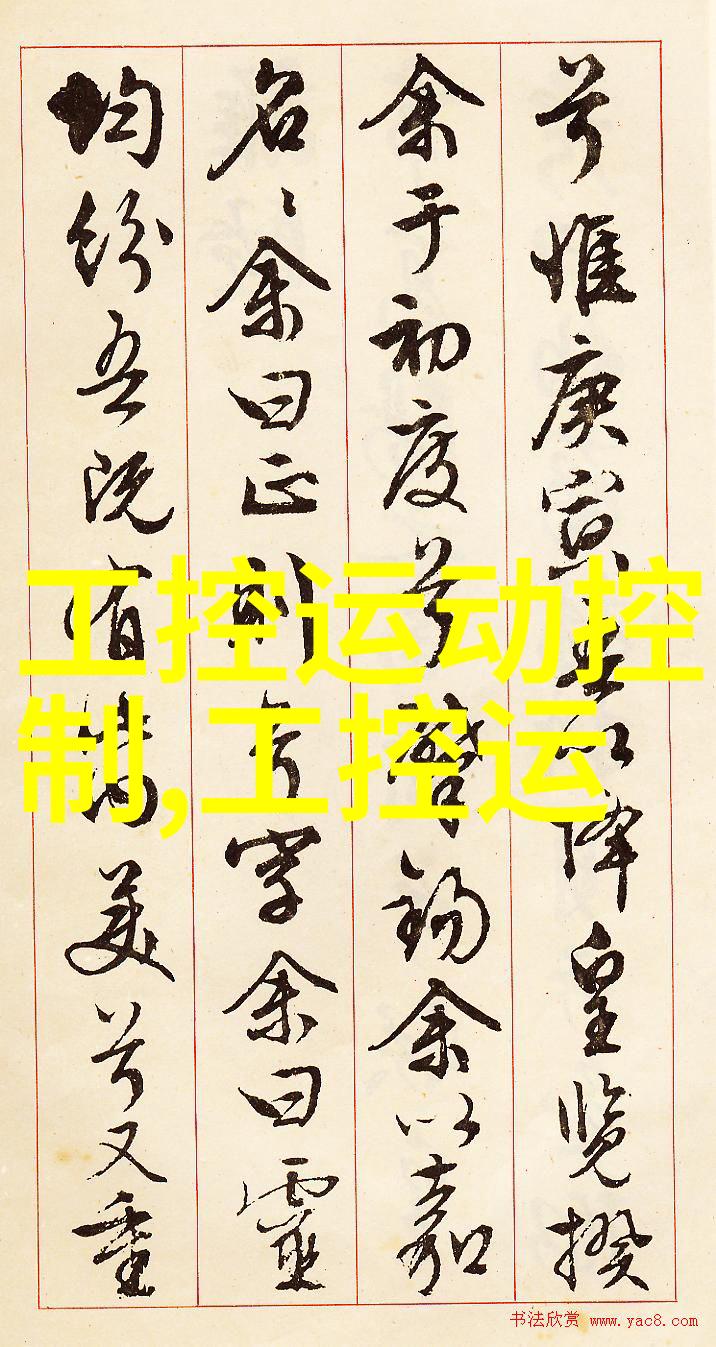 兮惟庚寅吾以降皇览揆
余于初度兮肇锡余以嘉
名々余曰正则兮字余曰靈
均纷吾既有此内美兮又重
工控运动控
制,工控运
书法欣赏 www.yac8.com